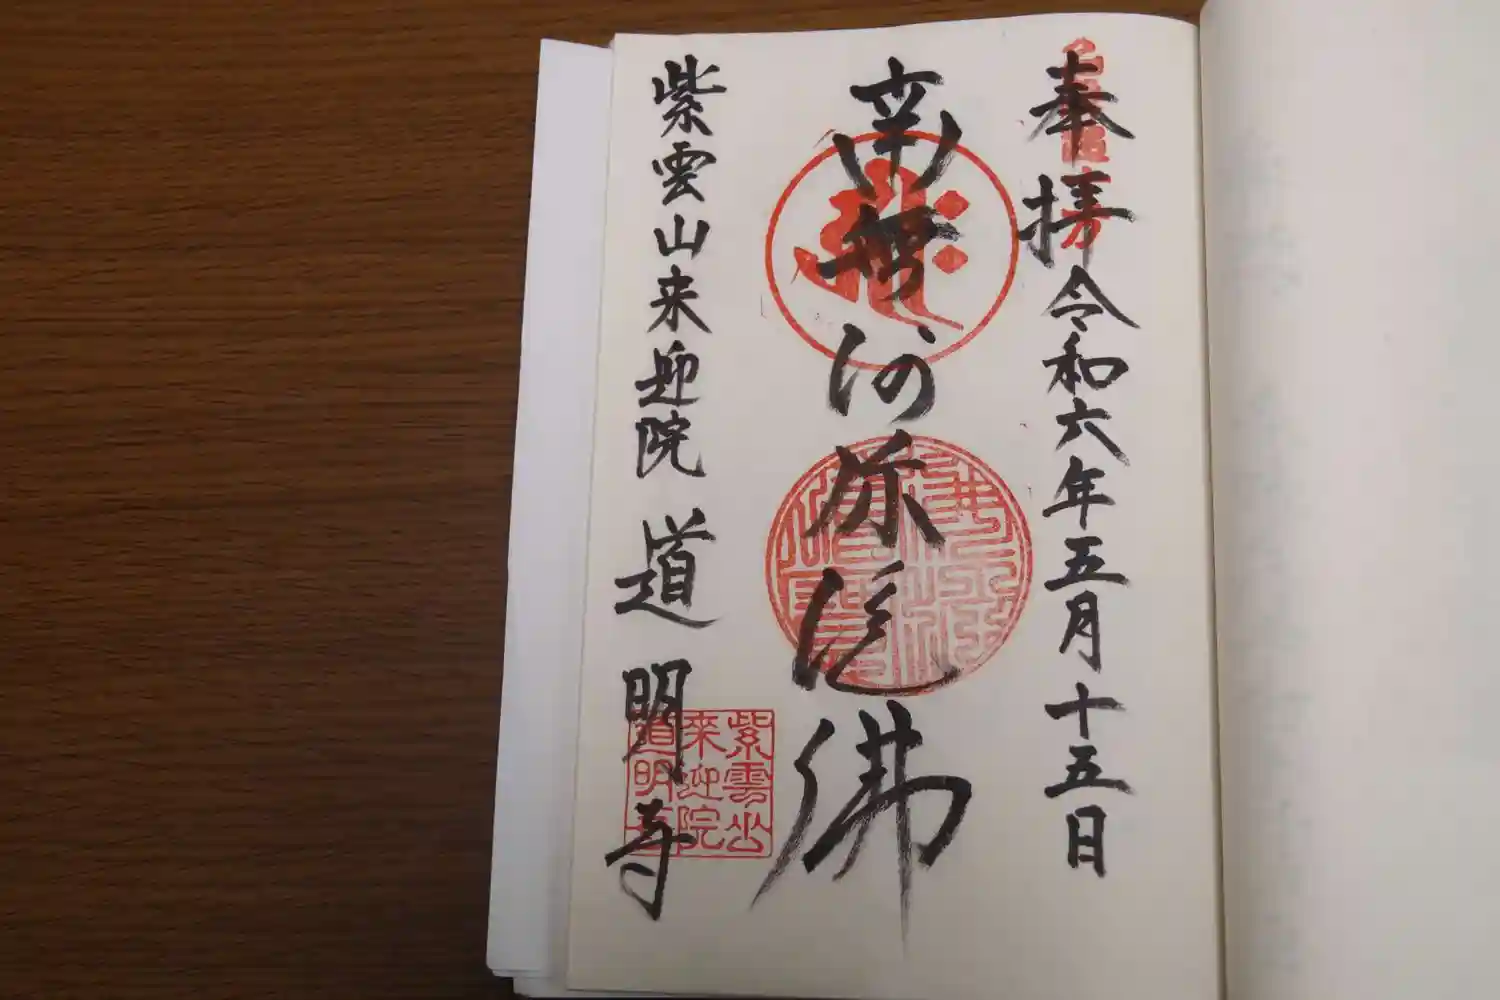 奉拝 令和六年五月十五日
南無阿弥陀佛
紫雲山来迎院 道明寺
紫雲山
來迎院
道明寺